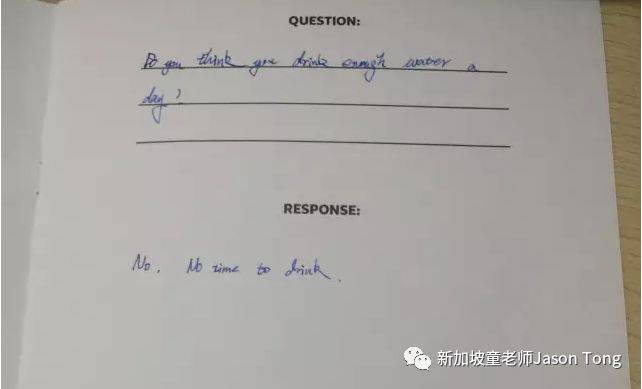 QUESTION:
Do you think you drink enough water a
day?
RESPONSE:
No. No time to drink.
新加坡童老师Jason Tong